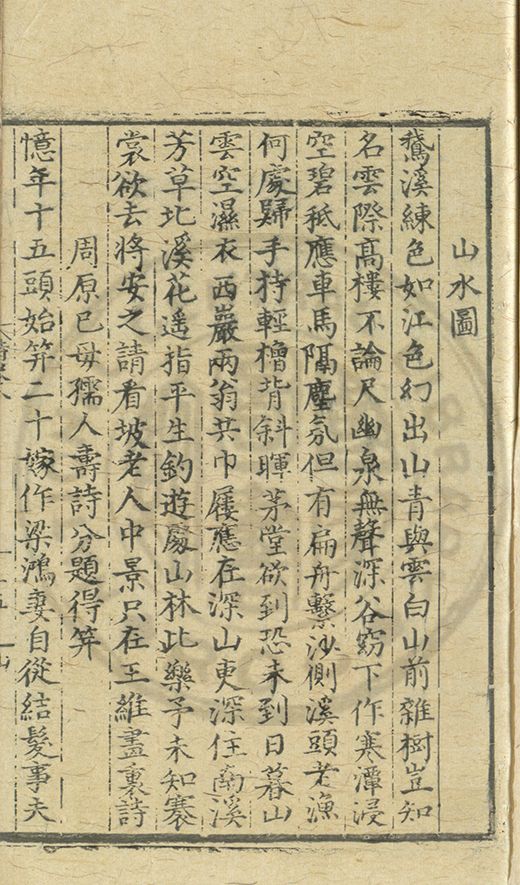 山水圖
鵞溪練色如江色幻出山青與雲白山前雜樹豈知
名雲際髙樓不論尺幽泉無聲深谷窈下作寒潭浸
空碧秪應車馬隔塵氛但有扁舟繫沙側溪頭老漁
何處歸手持輕櫓背斜暉茅堂欲到恐未到日暮山
雲空濕衣西巖兩翁共巾屨應在深山更深住南溪
芳草北溪花遥指平生釣遊處山林此樂予未知褰
裳欲去將安之請看坡老人中景只在王維畫裏詩
周原巳母孺人壽詩分題得笄
憶年十五頭始笄二十嫁作梁鴻妻自從結髪事夫